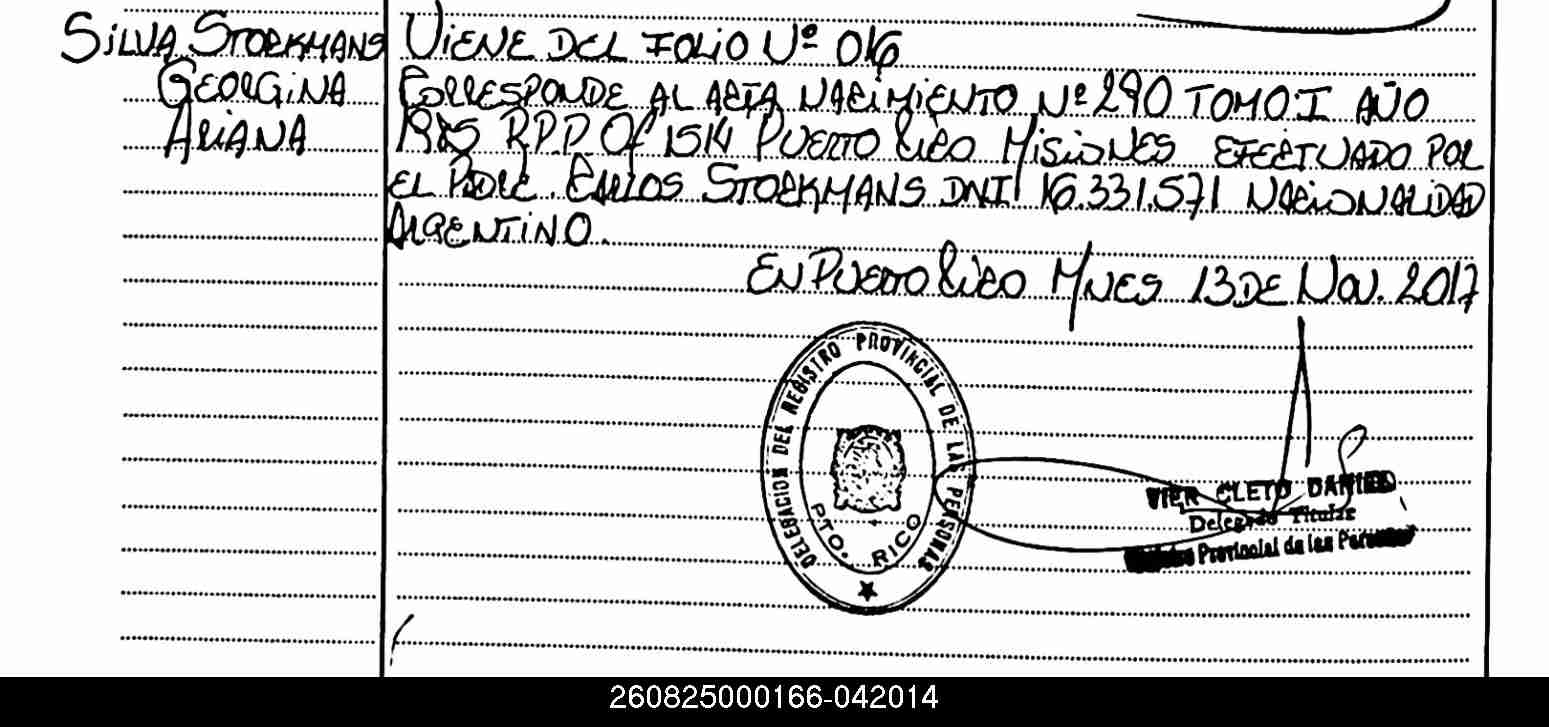 SILVA STOCKMANS
GEORGINA
ARIANA
VIENE DEL FOLIO Nº 016
CORRESPONDE AL ACTA NACIMIENTO Nº 290 TOMO I AÑO
R.P.P. Of 1514 PUERTO RICO MISIONES EFECTUADO POR
EL PADRE. CARLOS STOCKMANS DNI 16.331.571 NACIONALIDAD
ARGENTINO.
EN PUERTO RICO MNES 13 DE NOV. 2017
DELEGACION DEL REGISTRO PROVINCIAL DE LAS PERSONAS
PTO. RICO
VIER CLETO DANIEL
Delegado Titular
Provincial de las Personas
260825000166-042014